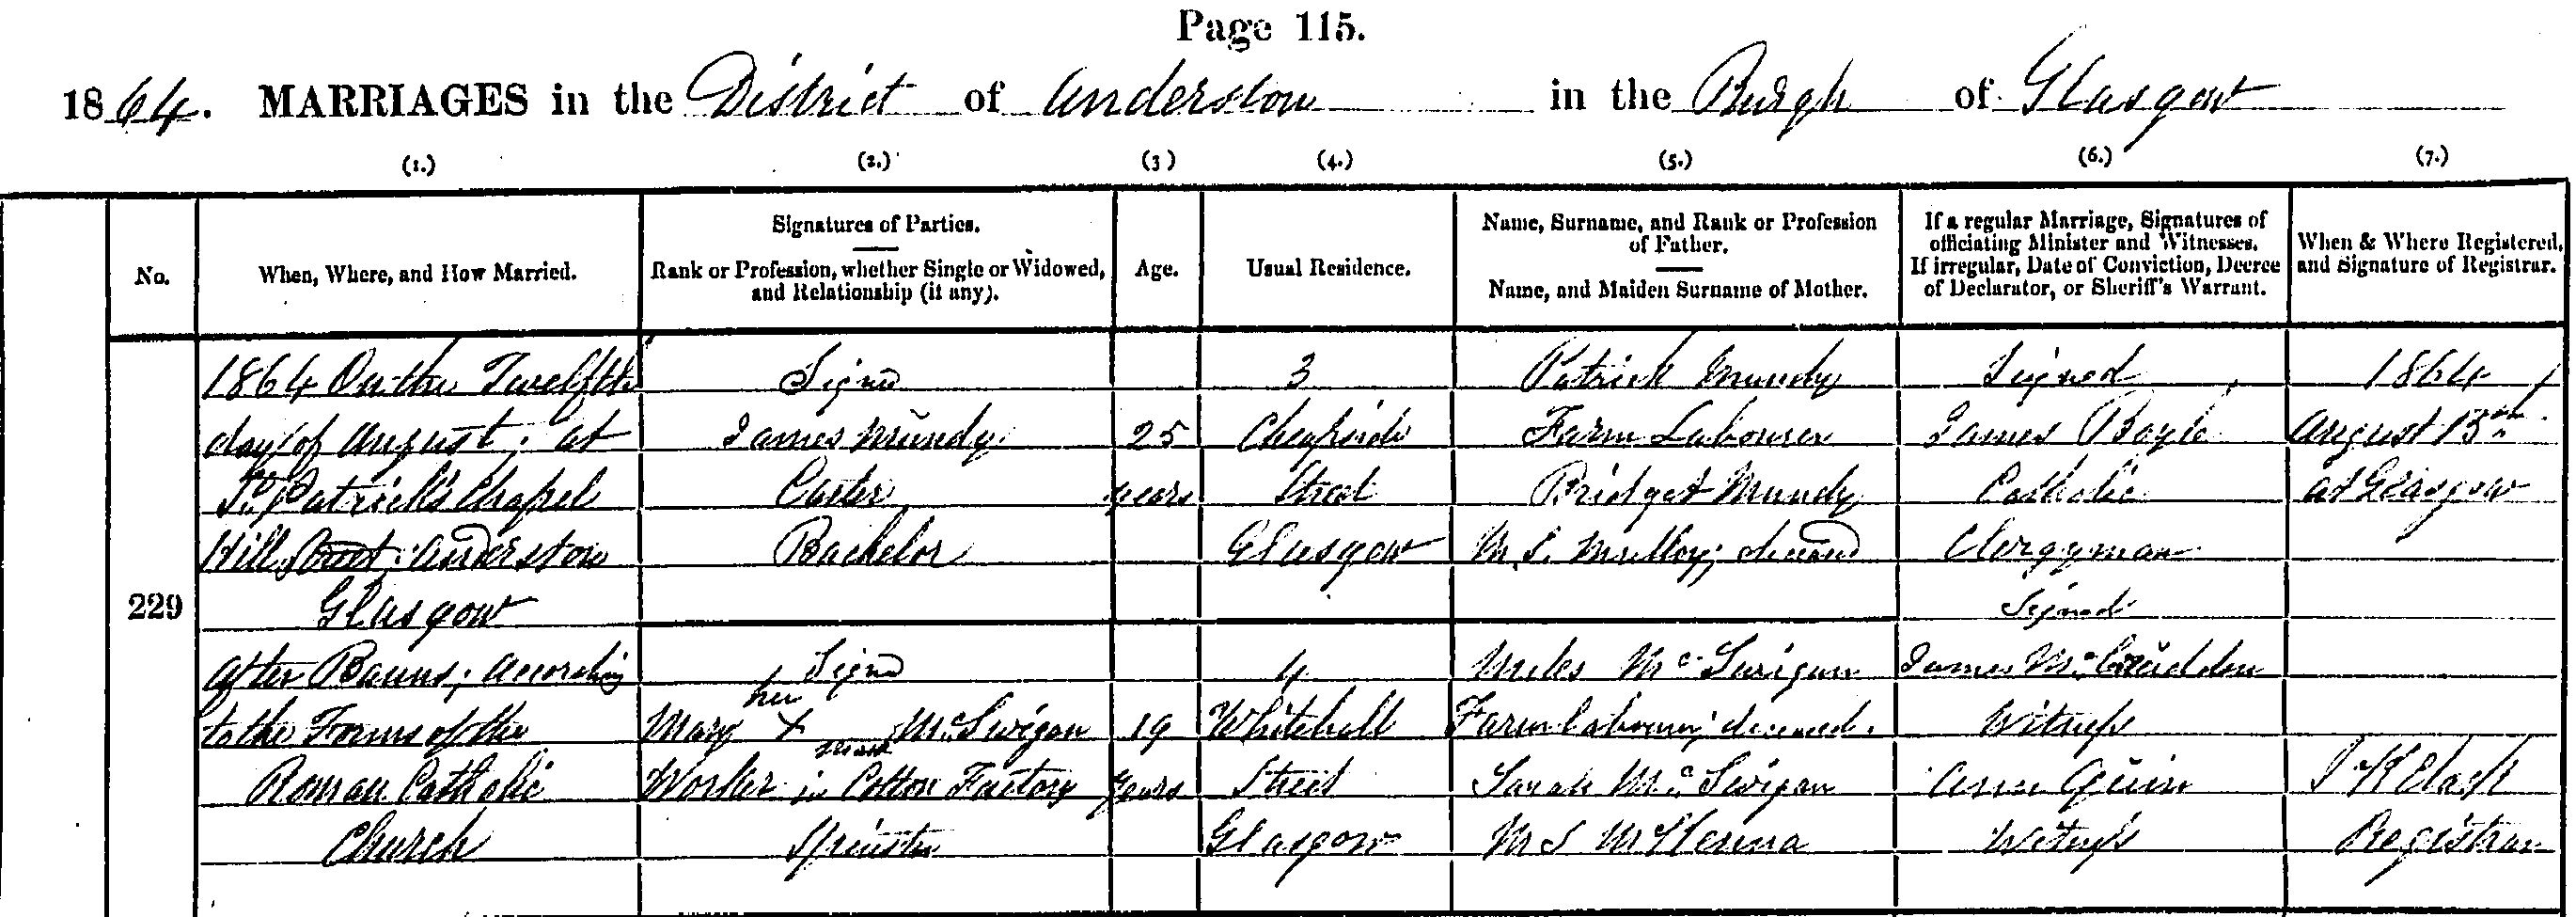 Page 115.
1864. MARRIAGES in the District of Anderston in the Burgh of Glasgow
(1.) (2.) (3) (4.) (5.) (6.) (7.)
No.
When, Where, and How Married.
Signatures of Parties.
Rank or Profession, whether Single or Widowed,
and Relationship (if any).
Age.
Usual Residence.
Name, Surname, and Rank or Profession
of Father.
Name, and Maiden Surname of Mother.
If a regular Marriage, Signatures of
officiating Minister and Witnesses.
If irregular, Date of Conviction, Decree
of Declarator, or Sheriff's Warrant.
When & Where Registered,
and Signature of Registrar.
229
1864 On the Twelfth
day of August; at
St. Patrick's Chapel
Hill Street; Anderston
Glasgow
After Banns; According
to the Forms of the
Roman Catholic
Church
Signd
James Mundy
Carter
Bachelor
Signd
her
Mary X McSwigan
mark
Worker in Cotton Factory
Spinster
25
years
19
years
3
Cheapside
Street
Glasgow
4
Whitehall
Street
Glasgow
Patrick Mundy
Farm Labourer
Bridget Mundy
M.S. Mulloy; deceased
Miles McSwigan
Farm Labourer; deceased.
Sarah McSwigan
M S McKenna
Signed
James Boyle
Catholic
Clergyman
Signed
James
Witness
Ann Quin
Witness
1864
August 13th
at Glasgow
Registrar